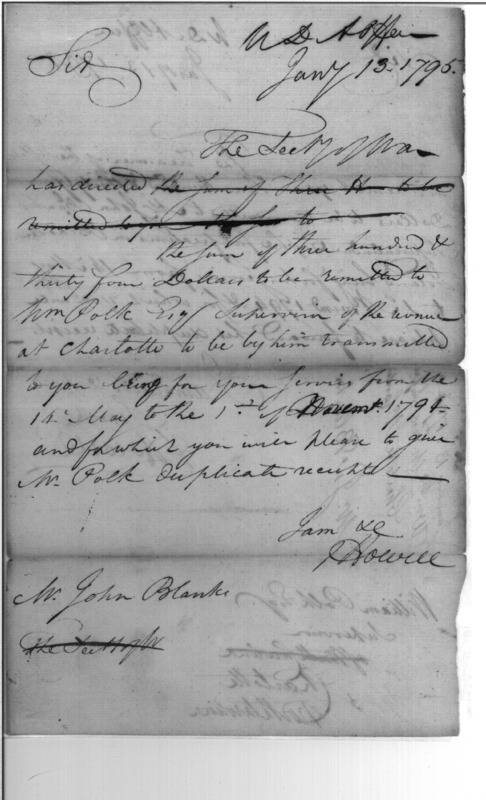 W D A Office
Sir
Jany 13. 1795.
The Secty of War
has directed the sum of Three Hu to be
remitted to you to
the sum of three hundred &
thirty four Dollars to be remitted to
Wm Polk Esq Supervisor of the revenue
at Charlotte to be by him transmitted
to you being for your services from the
1st May to the 1st of Novemr. 1794
and for which you will please to give
Mr. Polk duplicate receipts
I am &c
Howell
Mr. John Blanks
The Secty of W
William Polk Esq
Supervisor
Charlotte